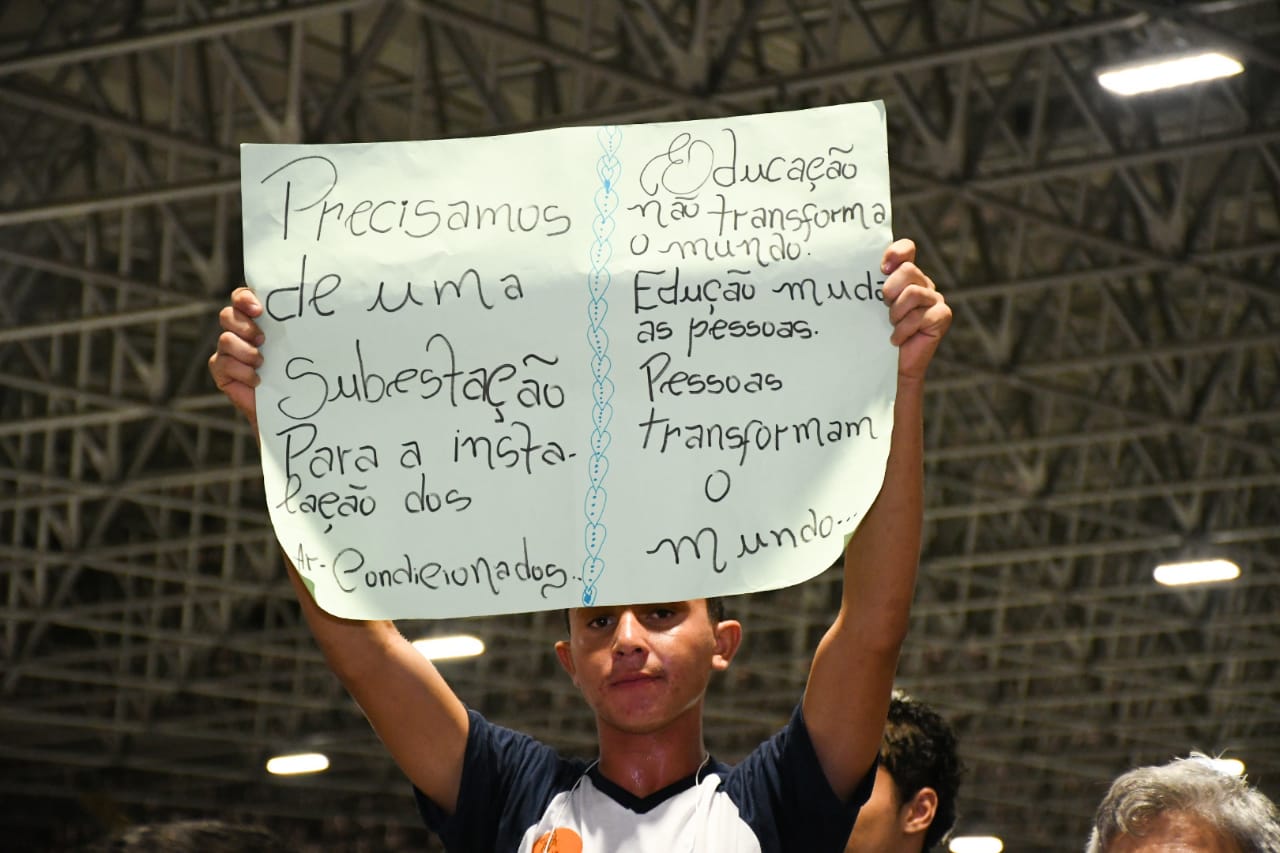 Precisamos
de uma
Subestação
Para a insta-
lação dos
Ar-Condicionados..
Educação
não transforma
o mundo.
Edução muda
as pessoas.
Pessoas
transformam
O
Mundo...